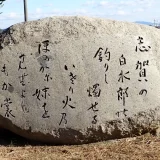 志賀の
白水郎の
釣りし 燭せる
いざり火乃
ほのかに妹を
見むよし
もが裳